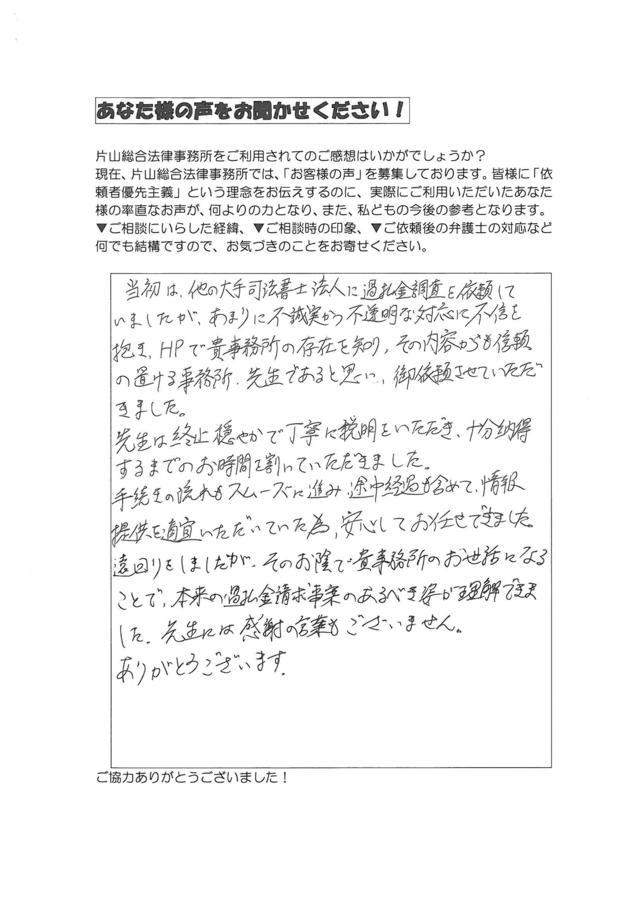 あなた様の声をお聞かせください！
片山総合法律事務所をご利用されてのご感想はいかがでしょうか？
現在、片山総合法律事務所では、「お客様の声」を募集しております。皆様に「依
頼者優先主義」という理念をお伝えするのに、実際にご利用いただいたあなた
様の率直なお声が、何よりの力となり、また、私どもの今後の参考となります。
▼ご相談にいらした経緯、▼ご相談時の印象、▼ご依頼後の弁護士の対応など
何でも結構ですので、お気づきのことをお寄せください。
当初は、他の大手司法書士法人に過払金調査を依頼して
いましたが、あまりに不誠実かつ不透明な対応に不信を
抱き、HPで貴事務所の存在を知り、その内容からも信頼
の置ける事務所、先生であると思い、御依頼させていただ
きました。
先生は終止穏やかで丁寧に説明をいただき、十分納得
するまでのお時間を割いていただきました。
手続きの流れもスムーズに進み、途中経過も含めて、情報
提供を適宜いただいていた為、安心してお任せできました。
遠回りをしましたが、そのお陰で貴事務所のお世話になる
ことで、本来の過払金請求事案のあるべき姿が理解できま
した。先生には感謝の言葉もございません。
ありがとうございます。
ご協力ありがとうございました！